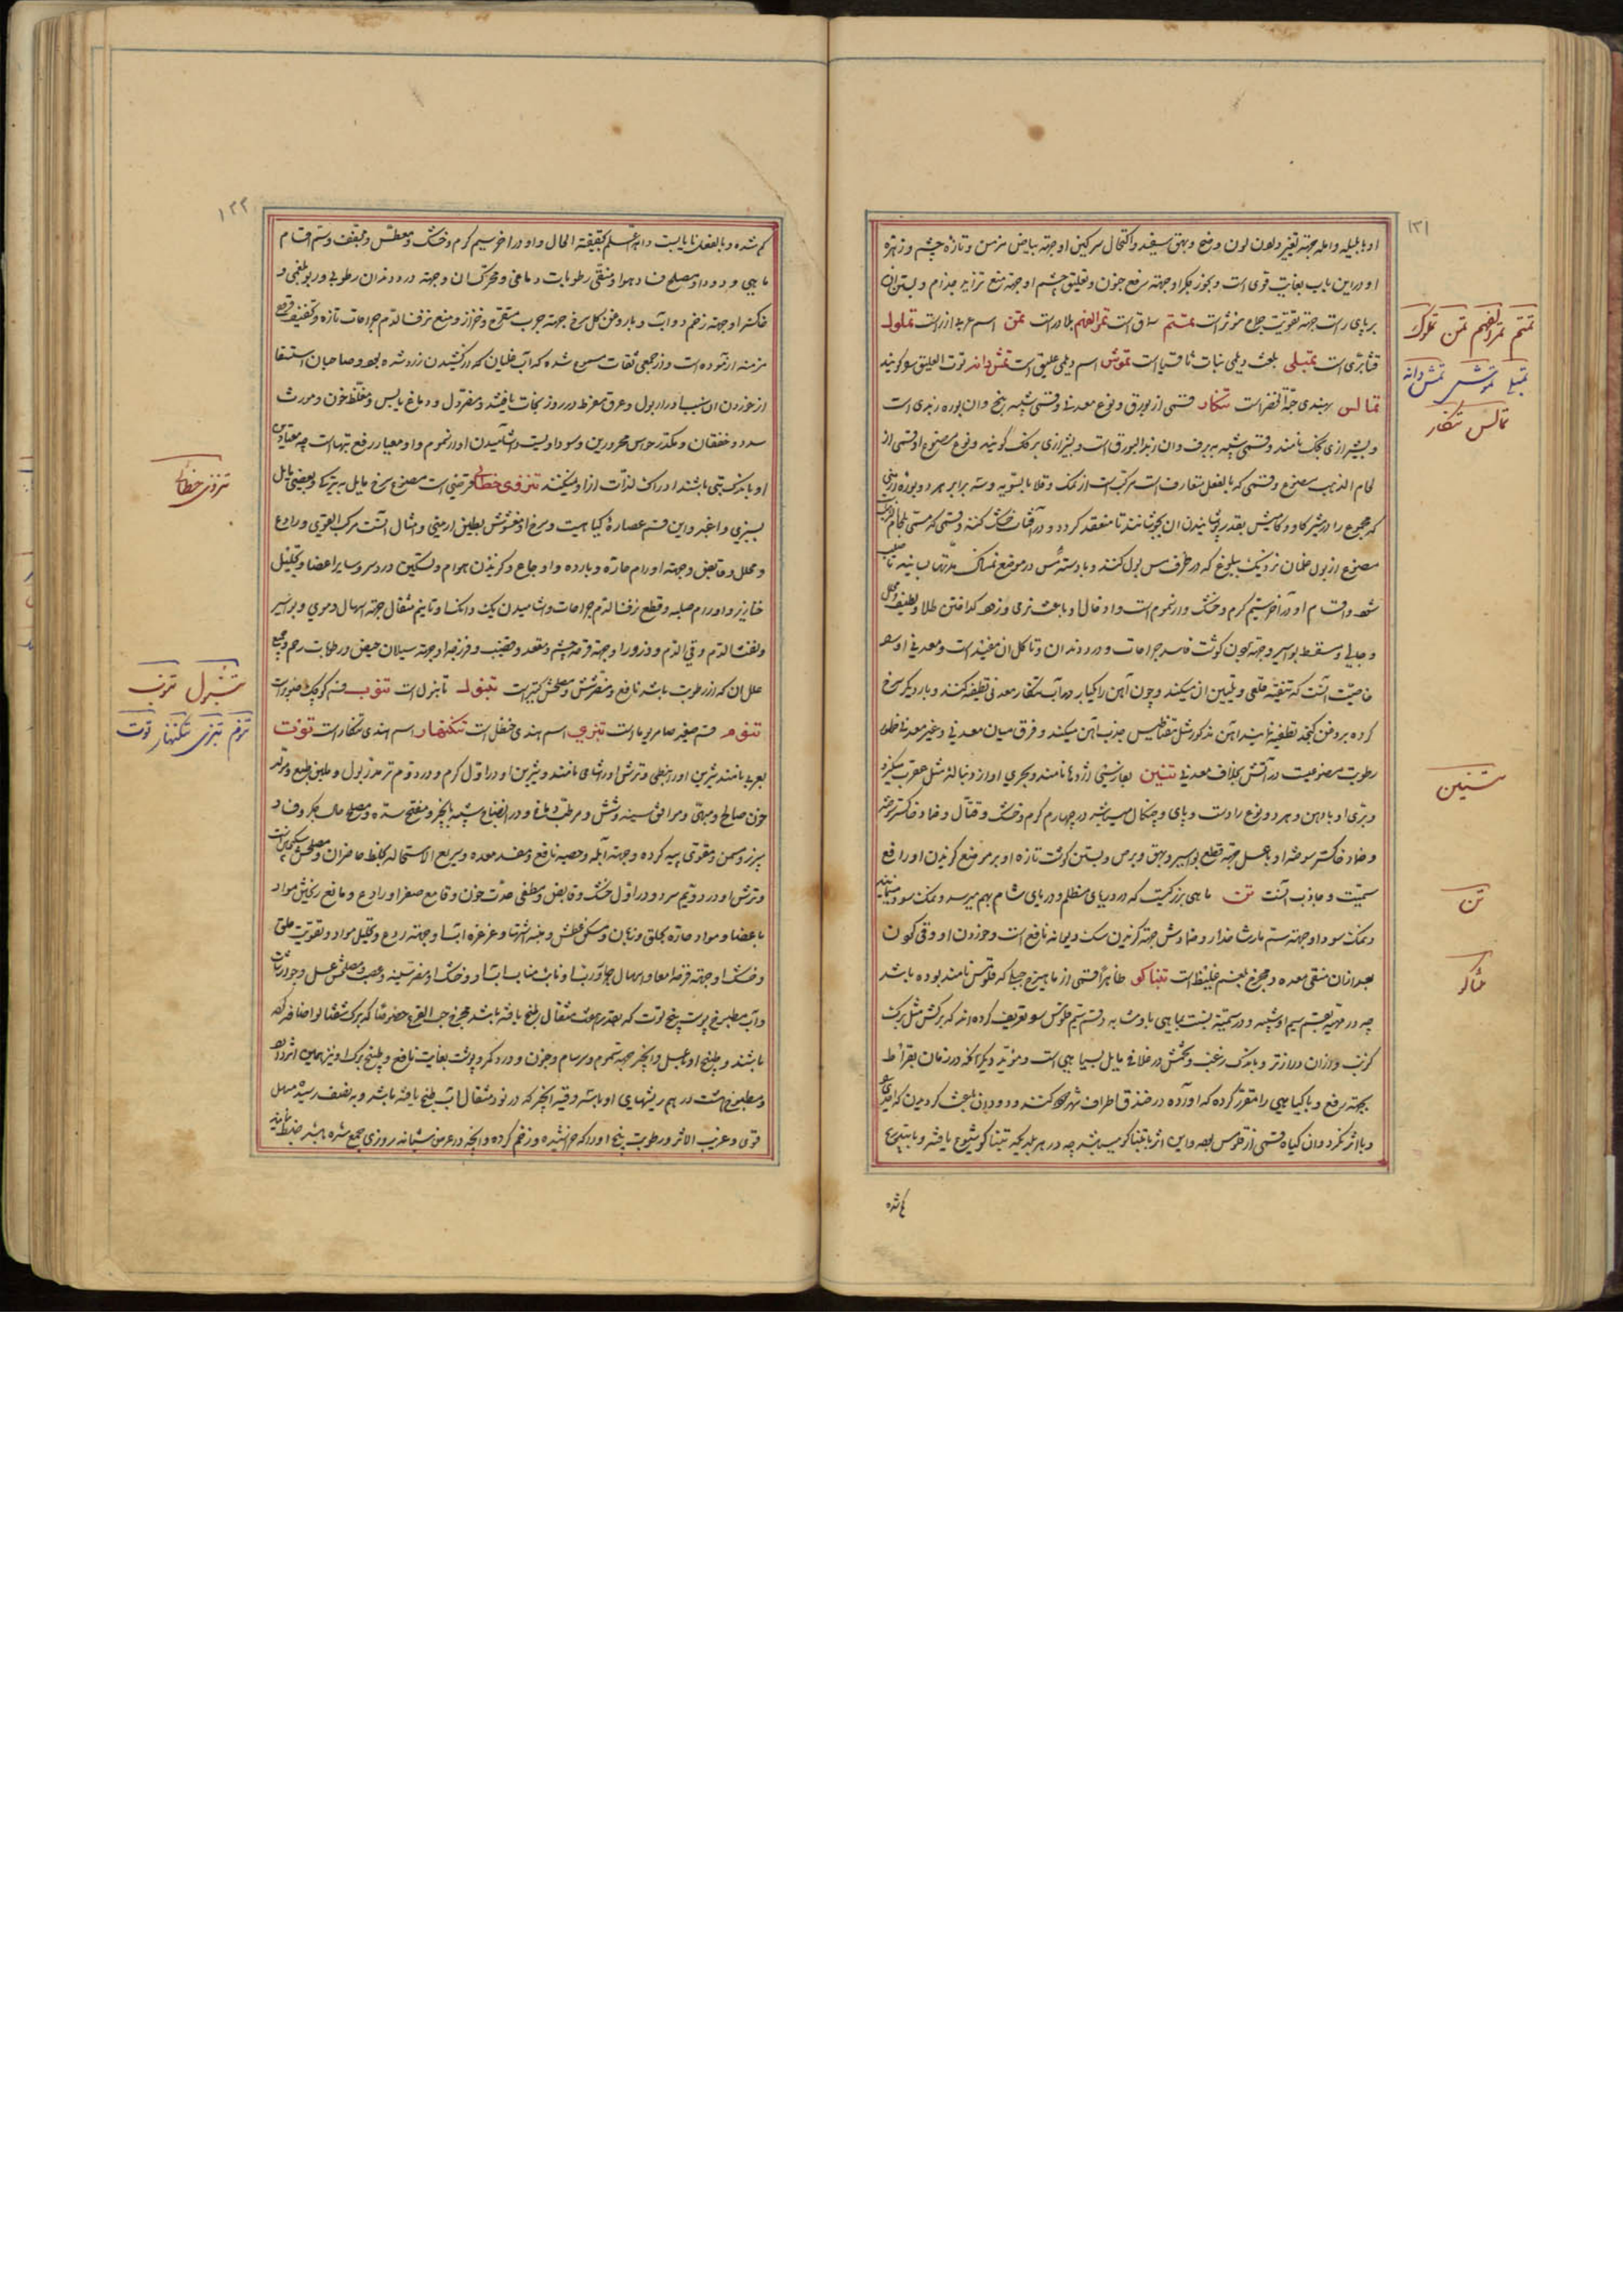 ۱۳۱
او با بلیله و امله جهة تغییر دلون لون و رفع و بهق سفید و اکتحال سرکین او جهة بیاض مزمن و تازه چشم و زهره
او در این باب بغایت قوی است و بخور جکر او جهة رفع جنون و تعلیق چشم او جهة منع تزاید جذام و بستن ان
بر پای راست جهة تقویت جماع موثر است تمتم سماق است تمر الفهم بلادر است تمن اسم عربی ازراست تملول
قثا بری است تمیلی بلغت دیلمی نبات ثافسیا است تموش اسم دیلمی علیق است تمش دانه توت العلیق سو کویند
تمالس بهندی حبة الخضر است تنکار قسمی از بورق و نوع معدنی و قسمی شبیه بیخ و ان بوره زبدی است
و بشیرازی تنک نامند و قسمی شبیه ببرف و ان زبد البورق است و بشیرازی برکف کویند و نوع مصنوع او قسمی از
لحام الذهب مصنوع و قسمی که بالفعل متعارف است مرکب است از نمک و قلا بالسویه و سه برابر هر دو بوره ارمنی
که مجموع را در شیر کاو و کامیش بقدر پوشانیدن ان بجوشانند تا منعقد کردد و در آفتاب خشک کنند و قسمی که مسمی بلحام
مصنوع از بول طفلان نزدیک ببلوغ که در ظرف مس بول کنند و با دسته مس در موضع نمناک مدتها بسایند تا
شود و اقسام او در آخر سیم کرم و خشک و از سموم است و او فالفا و باعث نرمی و زود کداختن طلا و
و جالی و مسقط بواسیر و جهة کوشت فاسد جراحات و درد دندان و تاکل ان مفید است و معدنی او
خاصیت آنست که تنقیه قلعی و تلیین ان میکند و چون آهن را یکبار در آب تنکار معدنی تطفیه کنند و بار دیکر سرخ
کرده بروغن کنجد تطفیه نمایند آهن مذکور مثل مغناطیس جذب آهن میکند و فرق میان معدنی و غیر معدنی
رطوبت مصنوعیت در آتش بخلاف معدنی تنین بفارسی اژدها نامند و بحری او از دنباله مثل عقرب میکزد
و بری او بادهن و هر دو نوع را دست و پای و چنکال میباشد در چهارم کرم و خشک و قتال و ضماد خاکستر
و ضماد خاکستر سوخته او با عسل جهة قطع بواسیر و بهق و برص و بستن کوشت تازه او بر موضع کزیدن او رافع
سمیت و جاذب آنست تن ماهی بزرکیست که در دریای مظلم و دریای شام بهم میرسد و نمک سود
و نمک سود او جهة سم مارشاخدار و ضمادش جهة کزیدن سک دیوانه نافع است و خوردن او و قی کردن
بعد از ان منقی معده و مخرج بلغم غلیظ است تنباکو ظاهرا قسمی از ماهیزهرج جبلی که قلومس نامند بوده باشد
چه در مهیت بقسم سیم او شبیه و در سمیت نسبت بماهی با و شبیه و قسم سیم قلومس سو تعریف کرده اند که برکش مثل برک
کرنب و از ان درازتر و با اندک زغب و تخمش در غلافی مایل بسیاهی است و موید دیکر انکه در زمان بقراط
بجهة رفع وبا کیاهی را مقرر کرده که او رده در خندق اطراف شهر کنند و دود ان باعث کردیدن که
وبا اثر نکرد و ان کیاه قسمی از قلومس بوده و این اثر با تنباکو میباشد چه در هر بلدی که تنباکو شیوع یافته وبا
کم شده
تمتم تمر الفهم تمن تملول
تمیلی تموش تمش دانه
تمالس تنکار
تنین
تن
تنباکو
۱۳۲
کم شده و بالفعل نایابست و الله اعلم بحقیقة الحال و او در آخر سیم کرم و خشک و معطس و مجفف و سم اقسام
ماهی و دود او مصلح فساد هوا و منقی رطوبات دماغی و محرک ان و جهة درد دندان رطوبی و ربو بلغمی و
خاکستر او جهة زخم دواب و با روغن کل سرخ جهة جرب متقرح و حزاز و منع نزف الدم جراحات تازه و تجفیف قروح
مزمنه ازموده است و از جمعی ثقات مسموع شده که آب غلیان که در کشیدن زرد شده بود صاحبان استسقا
از خوردن ان بسبب ادرار بول و عرق مفرط در روز نجات یافتند و مضر دل و دماغ یابس و مغلظ خون و مورث
سدد و خفقان و مکدر حواس محرورین و سوداویست و اشامیدن او از سموم و او معیار رفع تبهاست چه
او باندک تبی باشند ادراک لذات ازو نمیکنند تنزوی خطائی قرصی است مصنوع سرخ مایل بتیرکی و بعضی مایل
بسبزی و اغبر و این قسم عصاره کیاهیست و سرخ او مغشوش بطین ارمنی و امثال آنست مرکب القوی و رادع
و محلل و قابض و جهة اورام حاره و بارده و اوجاع و کزیدن هوام و تسکین درد سر و سایر اعضا و تحلیل
خنازیر و اورام صلبه و قطع نزف الدم جراحات و اشامیدن یک دانک او تا نیم مثقال جهة اسهال دموی و بواسیر
و نفث الدم و قی الدم و ذرور او جهة قرحه چشم و مقعد و قضیب و فرزجه او جهة سیلان حیض و رطوبات رحم و جمیع
علل ان که از رطوبت باشد نافع و مضر شش و مصلحش کتیرا است تنبول تانبول است تنوب قسم کوچک صنوبر است
تنوم قسم صغیر صامریوما است تنزی اسم هندی حنظل است تنکنهار اسم هندی تنکار است توت
بعربی نامند شیرین او را نبطی و ترش او را شامی نامند و شیرین او در اول کرم و در دوم تر مدر بول و ملین طبع و مولد
خون صالح و مبهی و موافق سینه و شش و مرطب دماغ و در انضاج شبیه بانجیر و مفتح سده و مصلح حال جکر و فساد
سپرز و مسمن و مقوی پیه کرده و جهة آبله و حصبه نافع و مفسد معده و سریع الاستحاله بخلط حاضران و مصلحش سکنجبین است
و ترش او در دویم سرد و در اول خشک و قابض و مطفی حدت خون و قامع صفرا و رادع و مانع ریختن مواد
باعضا و مواد حاره بحلق و زبان و مسکن عطش و منبه اشتها و غرغره اب او جهة ردع و تحلیل مواد و تقویت حلق
و خشک او جهة قرحه امعا و اسهال و رب او نایب مناب اب او و خشک او مضر سینه و عصب و مصلحش عسل و جوارشات
و آب مطبوخ پوست بیخ توت که بقدر بیست مثقال طبخ یافته باشد مخرج حب القرع خصوصا که برک شفتالو اضافه کرده
باشند و طبیخ او با عسل و انجیر جهة سموم و برسام و جنون و درد کمر و پشت بغایت نافع و طبیخ برک او نیز همین اثر دارد
و مطبوخ پوست در هم ریشهای او با سه وقیه انجیر که در نود مثقال آب طبخ یافته باشد و به نصف رسیده مسهل
قوی و غریب الاثر و رطوبت بیخ او را که خراشیده و زخم کرده و انچه در عرض شبانه روزی جمع شده باشد ضبط نمایند
تنزوی خطائی
تنبول تنوب
تنوم تنزی تنکنهار توت